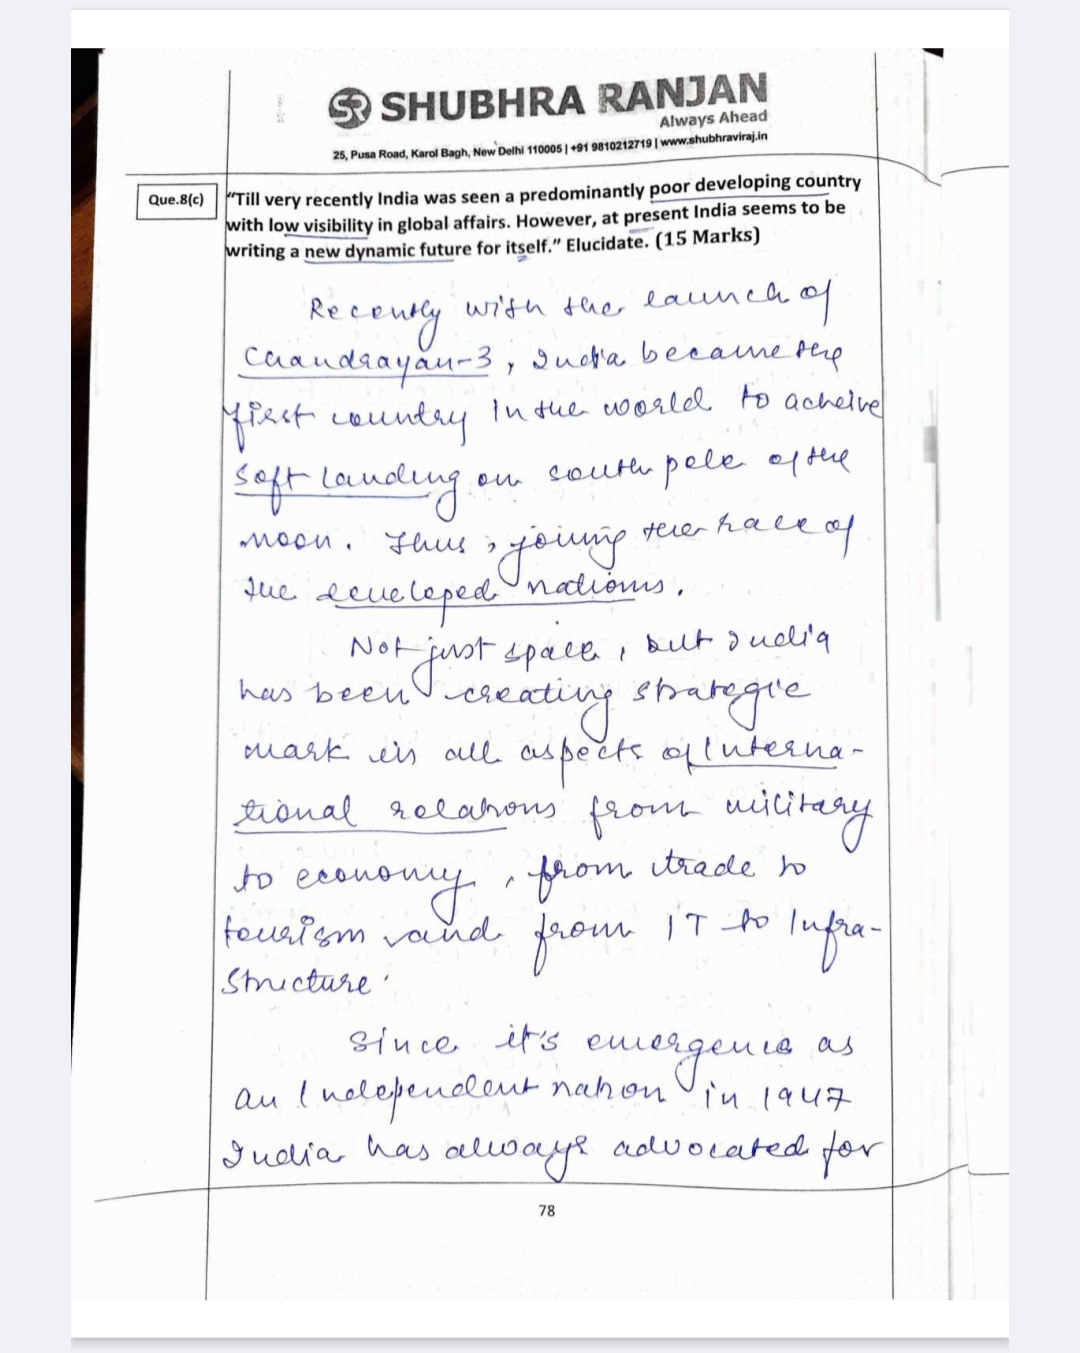 SR SHUBHRA RANJAN
Always Ahead
25, Pusa Road, Karol Bagh, New Delhi 110005 | +91 9810212719 | www.shubhraviraj.in
Que.8(c)
"Till very recently India was seen a predominantly poor developing country
with low visibility in global affairs. However, at present India seems to be
writing a new dynamic future for itself." Elucidate. (15 Marks)
Recently with the launch of
Chandrayan-3, India became the
first country in the world to acheive
soft landing on south pole of the
moon. Thus, joining the race of
the developed nations.
Not just space, but India
has been creating strategic
mark in all aspects of Interna-
tional relations from military
to economy, from trade to
tourism and from IT to Infra-
structure.
Since it's emergence as
an Independent nation in 1947
India has always advocated for
78